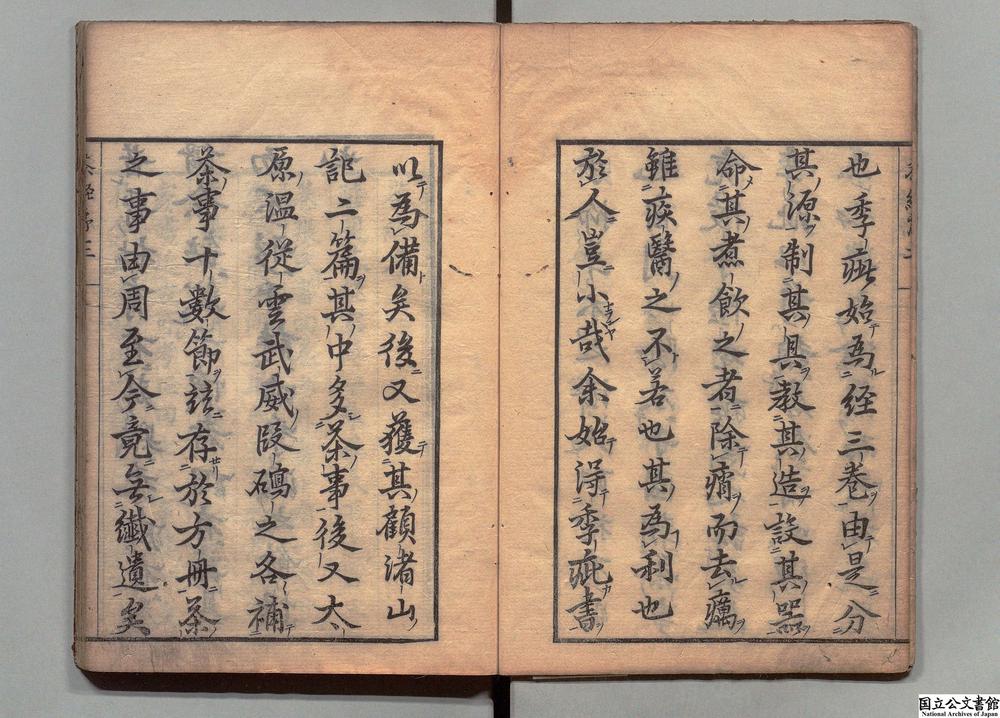 也季疵始為経三巻由是分
其源制其具教其造設其器
命其煮飲之者除痟而去癘
雖疾醫之不若也其為利也
於人豈小哉余始得季疵書
以為備矣後又獲其顧渚山
記二篇其中多茶事後又太
原温従雲武威段𥔲之各補
茶事十數節竝存於方冊茶
之事由周至今竟無纖遺矣
茶経序三
国立公文書館
National Archives of Japan